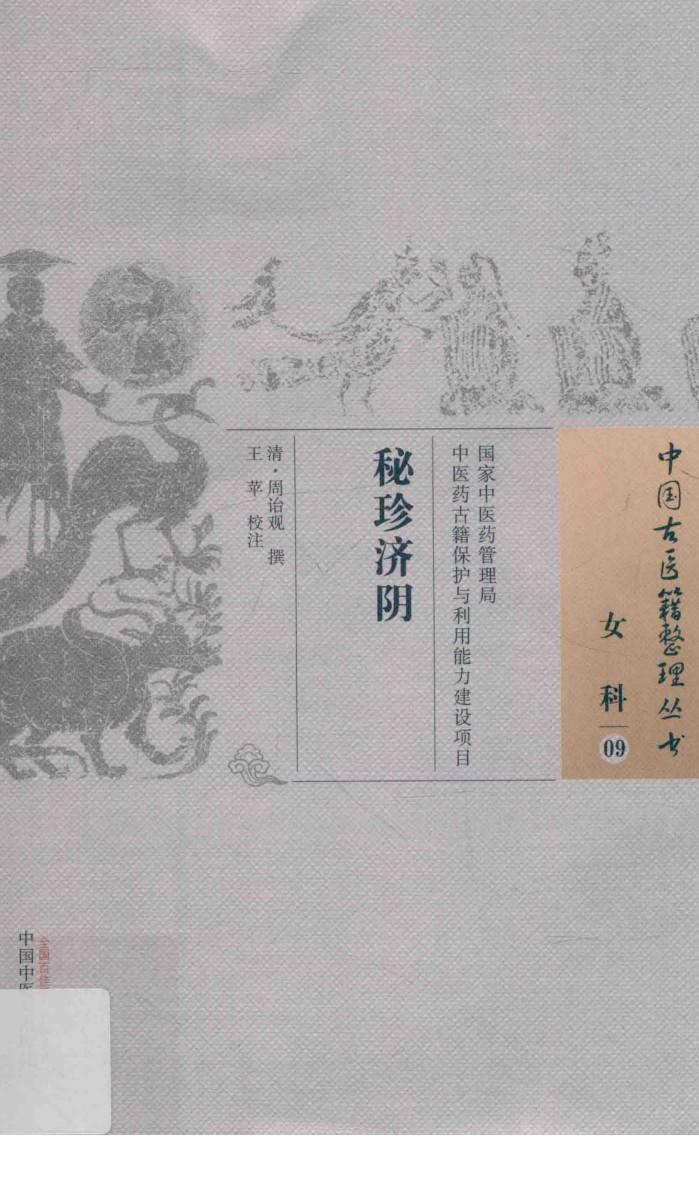 中国古医籍整理丛书
女科
09
国家中医药管理局
中医药古籍保护与利用能力建设项目
秘珍济阴
清·周诒观 撰
王苹 校注
全国百佳
中国中医